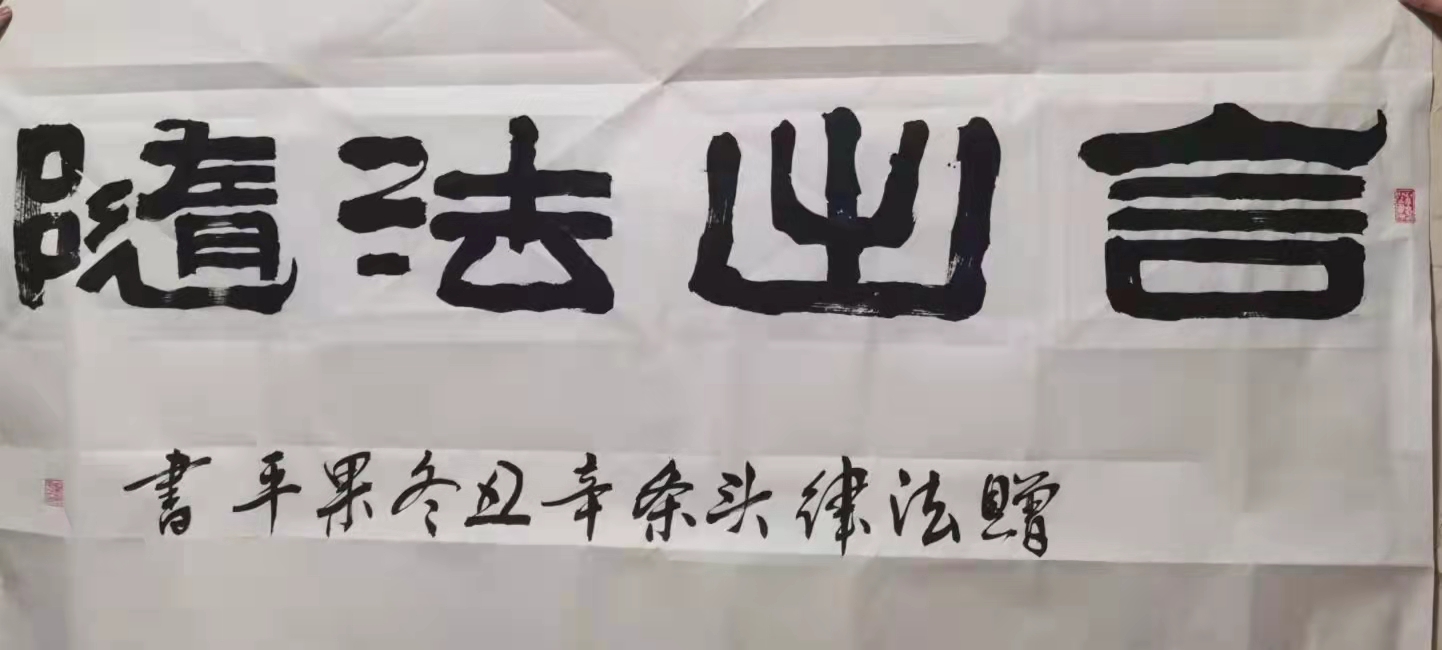 言出法隨
贈法律头条辛丑冬果平書